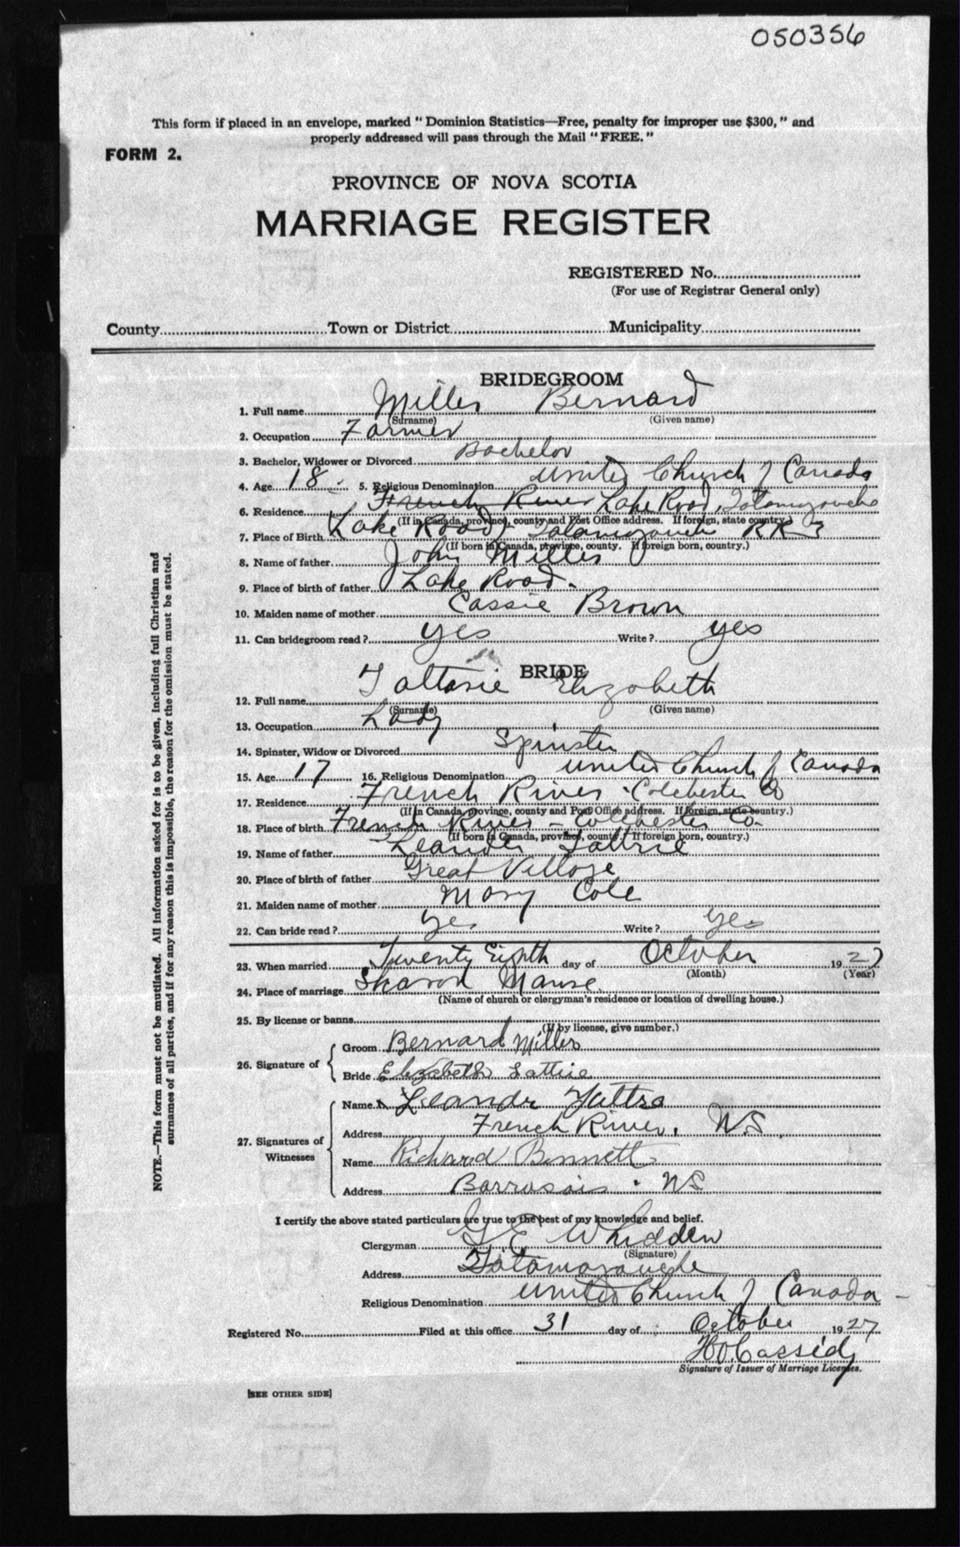 050356
This form if placed in an envelope, marked " Dominion Statistics—Free, penalty for improper use $300, " and
properly addressed will pass through the Mail " FREE. "
FORM 2.
PROVINCE OF NOVA SCOTIA
MARRIAGE REGISTER
REGISTERED No.
(For use of Registrar General only)
County Town or District Municipality
BRIDEGROOM
1. Full name Miller Bernard
(Surname) (Given name)
2. Occupation Farmer
3. Bachelor, Widower or Divorced Bachelor
4. Age 18 5. Religious Denomination United Church of Canada
6. Residence French River Lake Road, Tatamagouche
(If in Canada, province, county and Post Office address. If foreign, state country.)
7. Place of Birth Lake Road, Tatamagouche RR 3
(If born in Canada, province, county. If foreign born, country.)
8. Name of father John Miller
9. Place of birth of father Lake Road.
10. Maiden name of mother Cassie Brown
11. Can bridegroom read? yes Write? yes
BRIDE
12. Full name Tattrie Elizabeth
(Surname) (Given name)
13. Occupation Lady
14. Spinster, Widow or Divorced Spinster
15. Age 17 16. Religious Denomination United Church of Canada
17. Residence French River Colchester Co
(If in Canada, province, county and Post Office address. If foreign, state country.)
18. Place of birth French River - Colchester Co.
(If born in Canada, province, county. If foreign born, country.)
19. Name of father Leander Tattrie
20. Place of birth of father Great Village
21. Maiden name of mother Mary Cole
22. Can bride read? yes Write? yes
23. When married Twenty Eighth day of October 1927
(Month) (Year)
24. Place of marriage Sharon Manse
(Name of church or clergyman's residence or location of dwelling house.)
25. By license or banns
(If by license, give number.)
26. Signature of
Groom Bernard Miller
Bride Elizabeth Tattrie
27. Signatures of Witnesses
Name Leander Tattrie
Address French River, N.S.
Name Richard Bonnett
Address N S
I certify the above stated particulars are true to the best of my knowledge and belief.
Clergyman G E Whidden
(Signature)
Address Tatamagouche
Religious Denomination United Church of Canada -
Registered No. Filed at this office 31 day of October 1927
Cassidy
Signature of Issuer of Marriage Licenses.
[SEE OTHER SIDE]
NOTE.—This form must not be mutilated. All information asked for is to be given, including full Christian and
surnames of all parties, and if for any reason this is impossible, the reason for the omission must be stated.